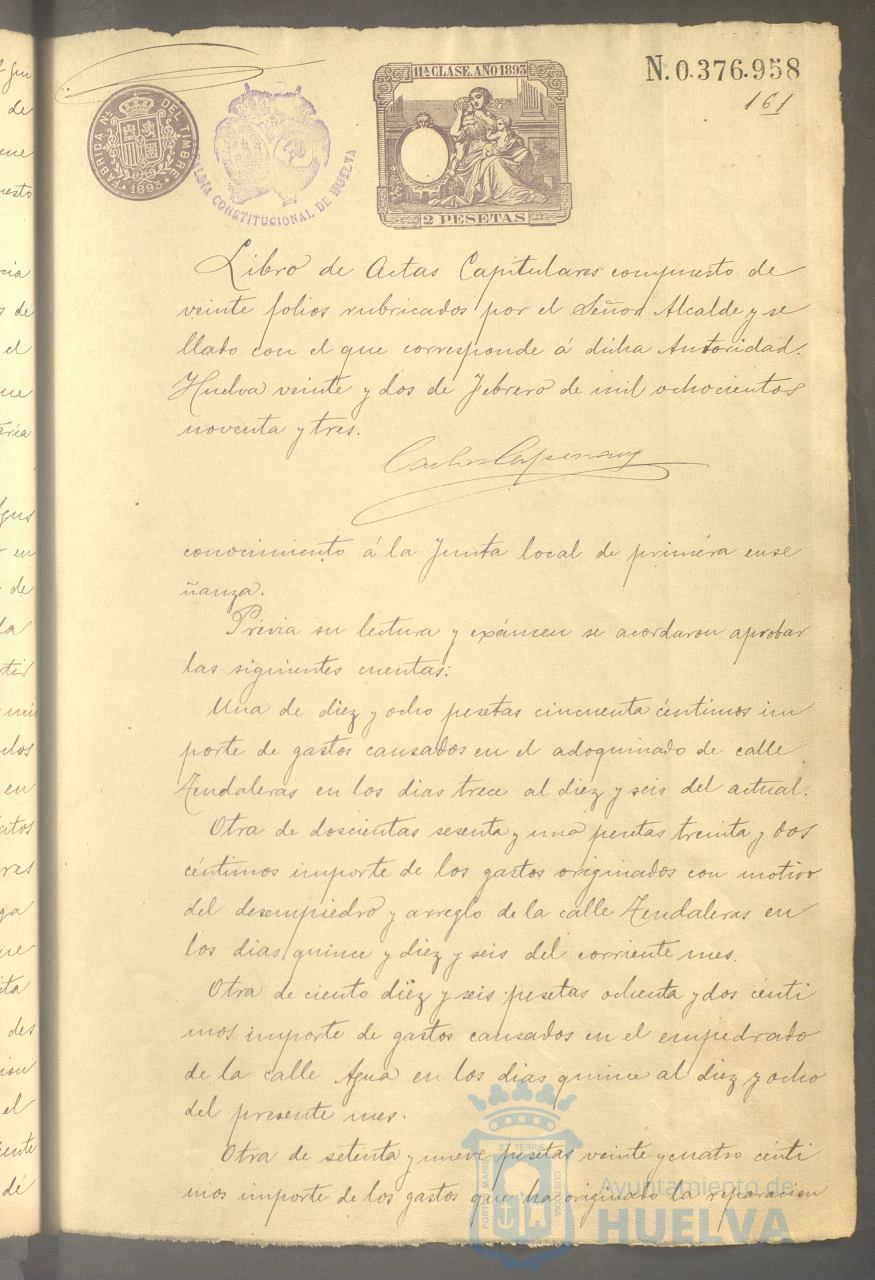 N. 0.376.958
161
11ª CLASE. AÑO 1893
2 PESETAS
FABRICA NL. DEL TIMBRE
1893
ALDIA CONSTITUCIONAL DE HUELVA
Libro de Actas Capitulares compuesto de
veinte folios rubricados por el Señor Alcalde y se
llado con el que corresponde á dicha Autoridad.
Huelva veinte y dos de Febrero de mil ochocientos
noventa y tres.
conocimiento á la Junta local de priméra ense
ñanza.
Prévia su lectura y exámen se acordaron aprobar
las siguientes cuentas:
Una de diez y ocho pesetas cincuenta céntimos im
porte de gastos causados en el adoquinado de calle
Zendaleras en los dias trece al diez y seis del actual.
Otra de doscientas sesenta y una pesetas treinta y dos
céntimos importe de los gastos originados con motivo
del desempiedro y arreglo de la calle Zendaleras en
los dias quince y diez y seis del corriente mes.
Otra de ciento diez y seis pesetas ochenta y dos cénti
mos importe de gastos causados en el empedrado
de la calle Agua en los dias quince al diez y ocho
del presente mes.
Otra de setenta y nueve pesetas veinte y cuatro cénti
mos importe de los gastos que ha originado la reparacion
PORTUS MARIS ET TERRÆ CUSTODIA
Ayuntamiento de
HUELVA